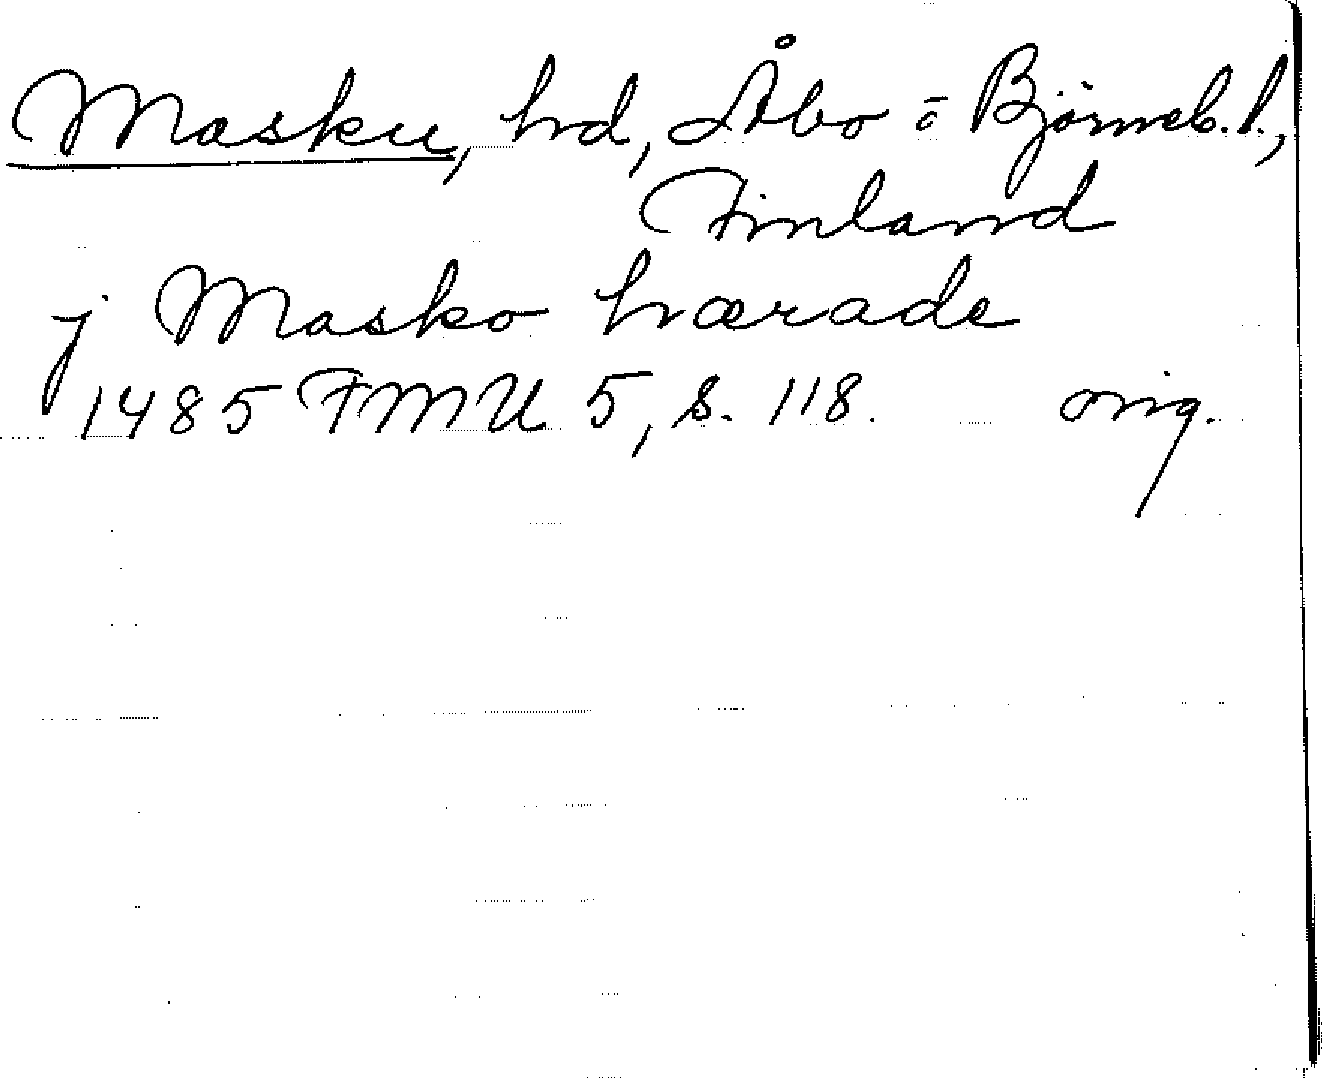 Masku, hd, Åbo o Björneb. l.,
Finland
j Masko hærade
1485 FMU 5, s. 118. orig.